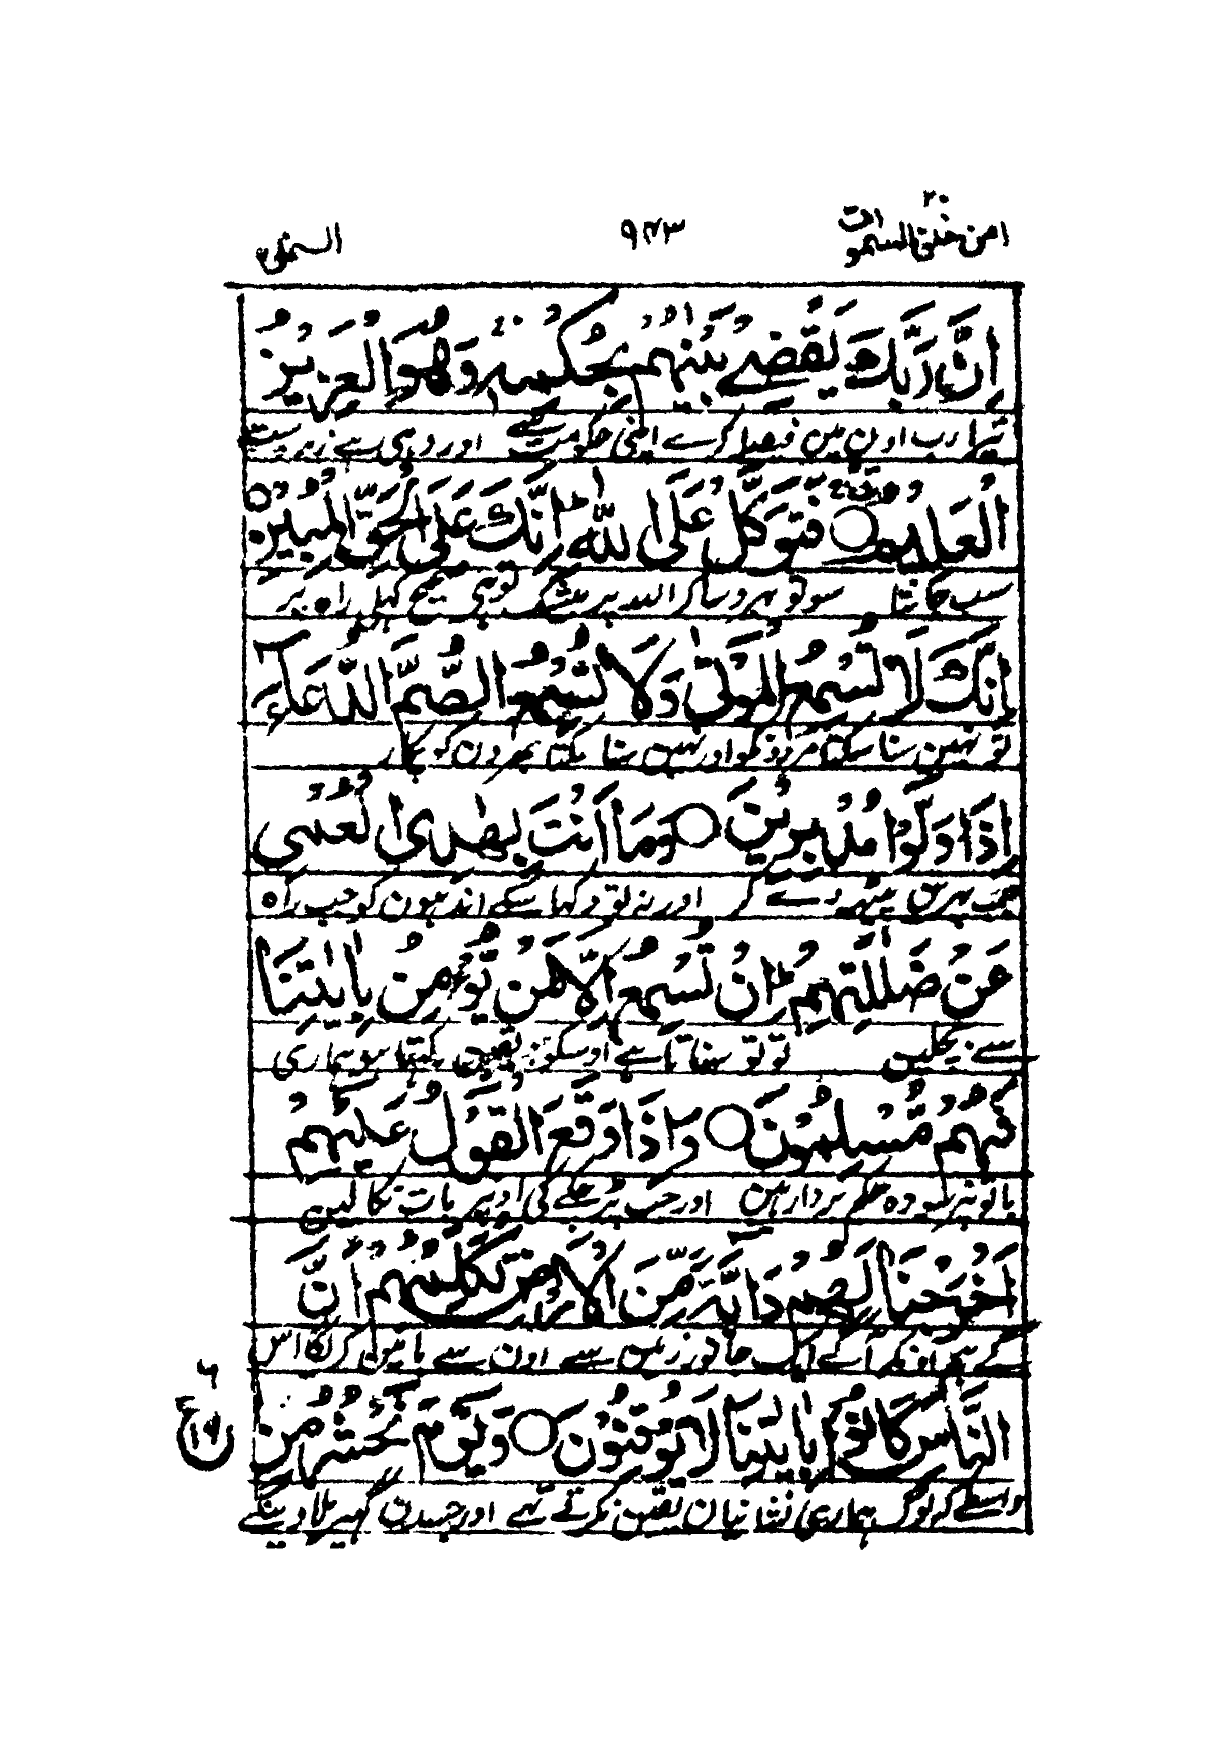 امن خلق السموات ٢٠
٩٤٣
النمل ٢٧
اِنَّ رَبَّكَ يَقْضِىْ بَيْنَهُمْ بِحُكْمِهٖ وَهُوَ الْعَزِيْزُ
تیرا رب اون مین فیصلہ کرے اپنی حکومت سے اور وہی ہے زبردست
الْعَلِيْمُ ○ فَتَوَكَّلْ عَلَى اللّٰهِ اِنَّكَ عَلَى الْحَقِّ الْمُبِيْنِ ○
سب جانتا سو تو بہروسا کر اللہ پر بیشک تو ہی صحیح کہلی راہ پر
اِنَّكَ لَا تُسْمِعُ الْمَوْتٰى وَلَا تُسْمِعُ الصُّمَّ الدُّعَآءَ
تو نہین سنا سکتا مردونکو اور نہین سنا سکتا بہرون کو پکار
اِذَا وَلَّوْا مُدْبِرِيْنَ ○ وَمَآ اَنْتَ بِهٰدِى الْعُمْىِ
جب پہرین پیٹہہ دے کر اور نہ تو دکہا سکے اندہون کو جب راہ
عَنْ ضَلٰلَتِهِمْ اِنْ تُسْمِعُ اِلَّا مَنْ يُّؤْمِنُ بِاٰيٰتِنَا
سے بچلین تو تو سناتا ہے اوسکو جو یقین رکہتا ہو ہماری
فَهُمْ مُّسْلِمُوْنَ ○ وَاِذَا وَقَعَ الْقَوْلُ عَلَيْهِمْ
باتونپر سو وہ حکم بردار ہین اور جب پڑ چکے گی اونپر بات نکالین
اَخْرَجْنَا لَهُمْ دَآبَّةً مِّنَ الْاَرْضِ تُكَلِّمُهُمْ اَنَّ
گے ہم اونکے آگے ایک جانور زمین سے اون سے باتین کریگا اس
النَّاسَ كَانُوْا بِاٰيٰتِنَا لَا يُوْقِنُوْنَ ○ وَيَوْمَ نَحْشُرُ مِنْ
واسطے کہ لوگ ہماری نشانیان یقین نکرتے تہے اور جسدن گہیر بلاوینگے
٦
ع